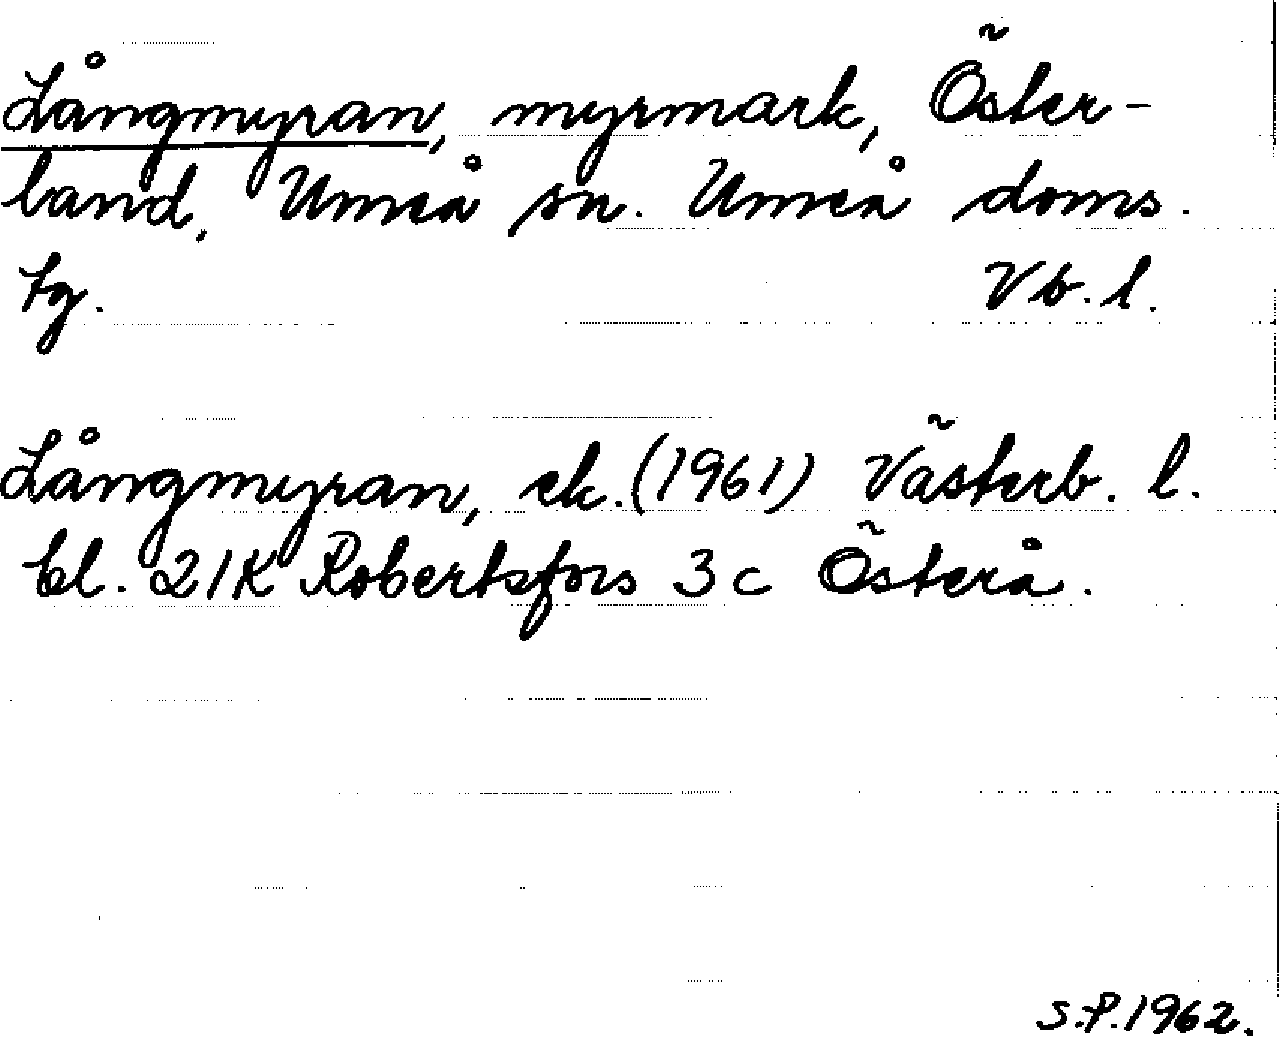 Långmyran, myrmark, Öster-
land, Umeå sn. Umeå doms.
tg. Vb. l.
Långmyran, ek. (1961) Västerb. l.
bl. 21K Robertsfors 3c Österå.
S.P. 1962.